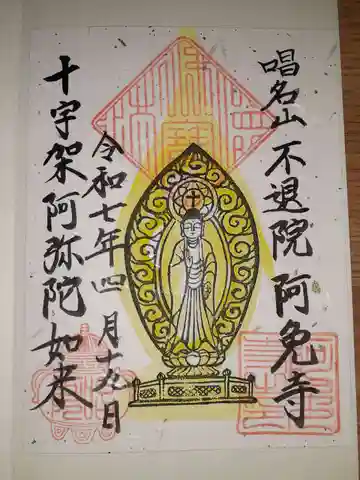 唱名山不退院阿免寺
令和七年四月十九日
十字架阿弥陀如来